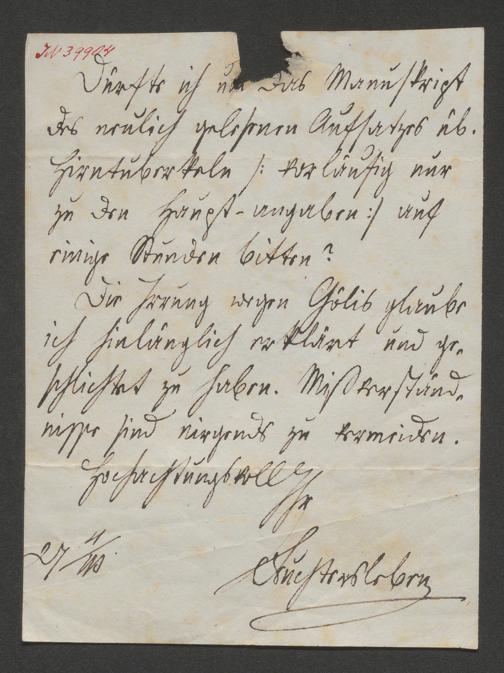 IN 39924
Dürfte ich um das Manuskript
des neulich gelesenen Aufsatzes üb.
Hirntuberkeln /: vorläufig nur
zu den Haupt-angaben :/ auf
einige Stunden bitten?
Die Irrung wegen Gölis glaube
ich hinlänglich erklärt und ge-
schlichtet zu haben. Mißverständ-
nisse sind nirgends zu vermeiden.
Hochachtungsvoll
Ihr
Feuchtersleben